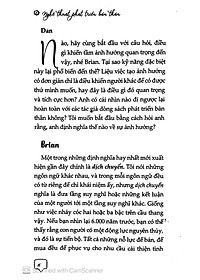 Nghệ thuật phát triển bản thân
Dan
Nào, hãy cùng bắt đầu với câu hỏi, điều
gì khiến tầm ảnh hưởng quan trọng đến
vậy, nhé Brian. Tại sao kỹ năng đặc biệt
này lại phổ biến đến thế? Liệu việc tạo ảnh hưởng
có đơn giản chỉ là điều khiển người khác để có được
thứ mình muốn, hay là điều gì đó quan trọng
và tích cực hơn? Anh có cái nhìn nào đi ngược lại hoàn
toàn với các tác giả dòng sách phát triển bản
thân không? Tôi muốn bắt đầu bằng cách hỏi anh
rằng, anh định nghĩa thế nào về sự ảnh hưởng?
Brian
Một trong những định nghĩa hay nhất mới xuất
hiện gần đây chính là dịch chuyển. Tôi nói những
ngôn ngữ khác nhau, và trong mỗi ngôn ngữ đều
có từ riêng để chỉ khái niệm ấy, nhưng dịch chuyển
nghĩa là đưa tầng suy nghĩ hoặc những kết luận
của một người tới một tầng suy nghĩ khác. Giống
như việc nhảy cóc hai hoặc ba bậc trên cầu thang
vậy. Nếu bạn nhìn lại 6.000 năm trước, bạn có thể
thấy rằng con người có một động lực nguyên thủy,
và đó là sự tiến bộ. Tất cả những nỗ lực để bán, để
mua đều để phục vụ cho nhu cầu cải thiện tình
with CamScanner